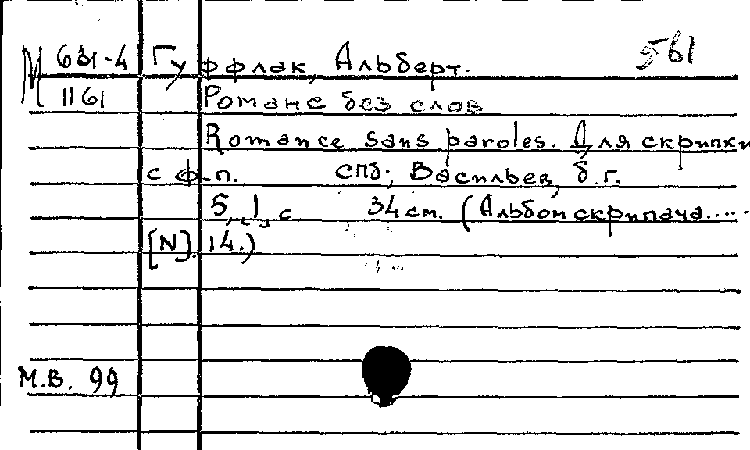 М 631-4 Гуффлак, Альберт. 561
1161 Романс без слов
Romance sans paroles. Для скрипки
с ф.-п. СПб; Васильев, б.г.
5, 1, с 34 см. (Альбом скрипача.....
[N]. 14.)
М.В. 99